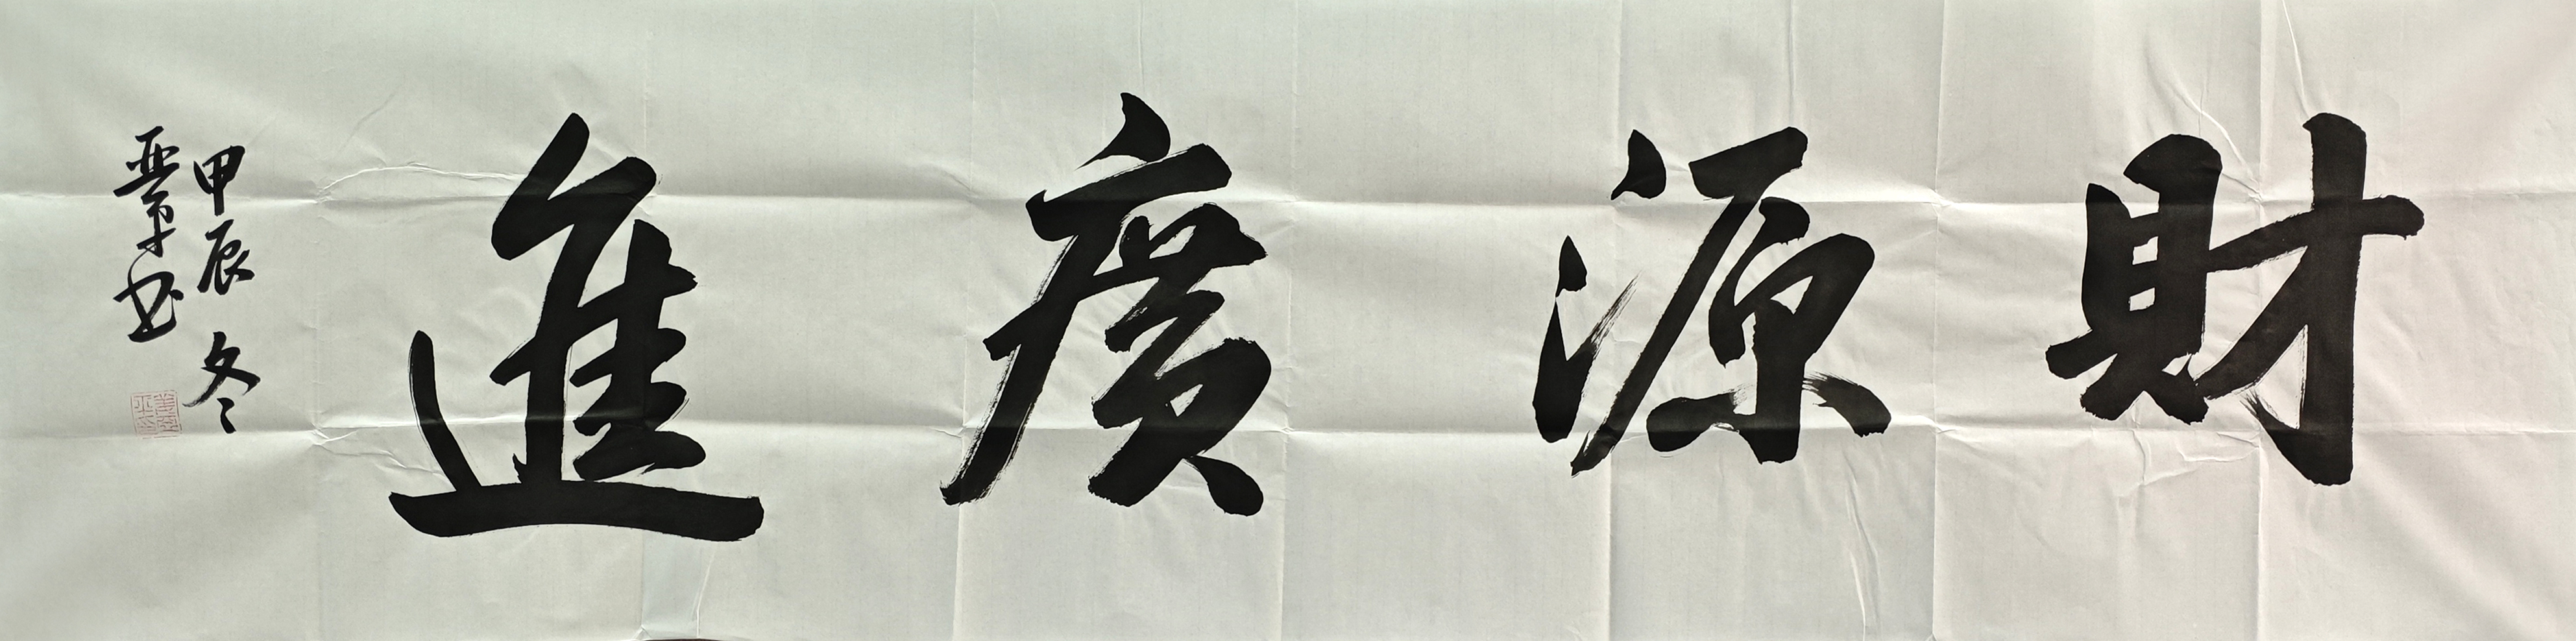 財源廣進
甲辰冬
书